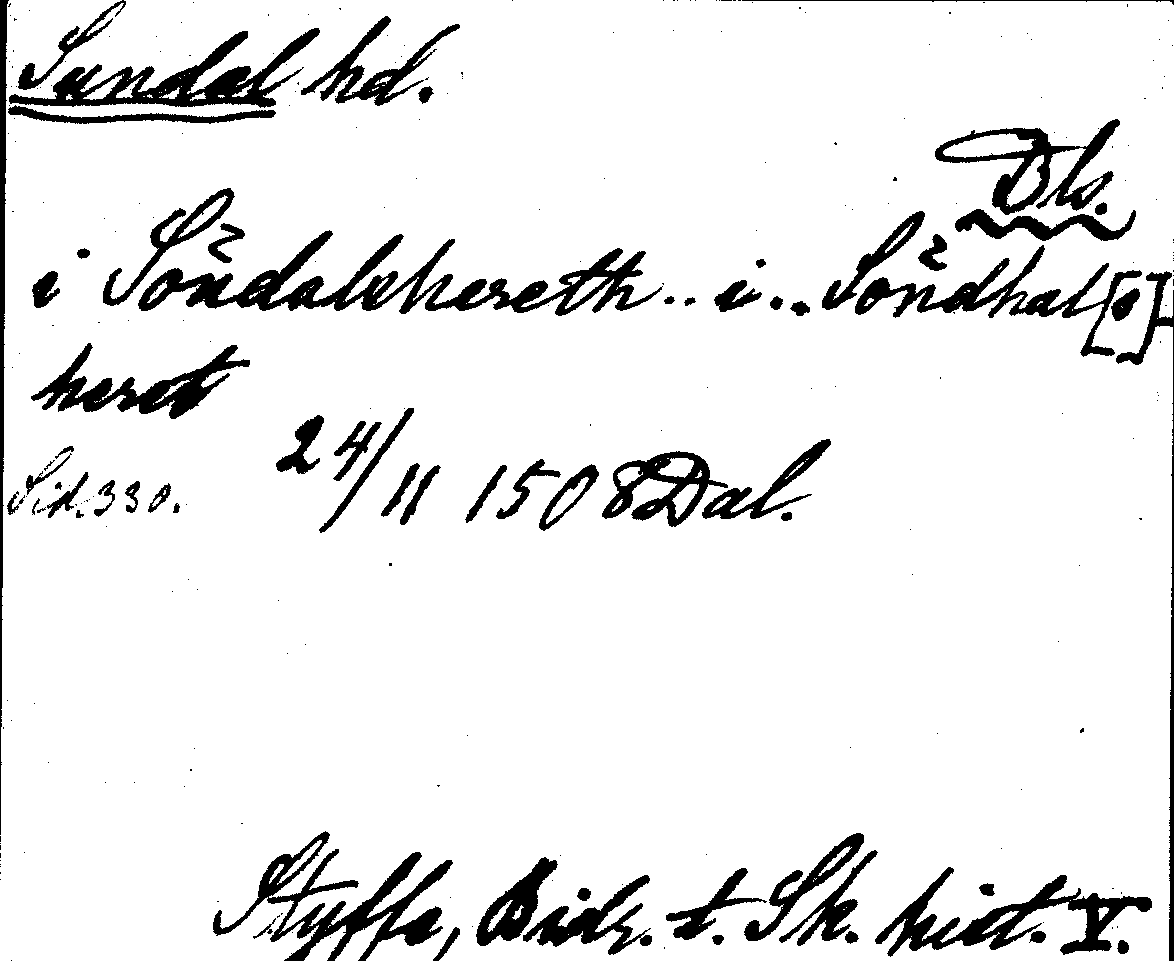 Sundal hd.
Dls.
i Sondalshereth .. i .. Sondhal[s]-
heret
Sid. 330. 24/11 1508 Dal.
Styffe, Bidr. t. Sk. hist. V.